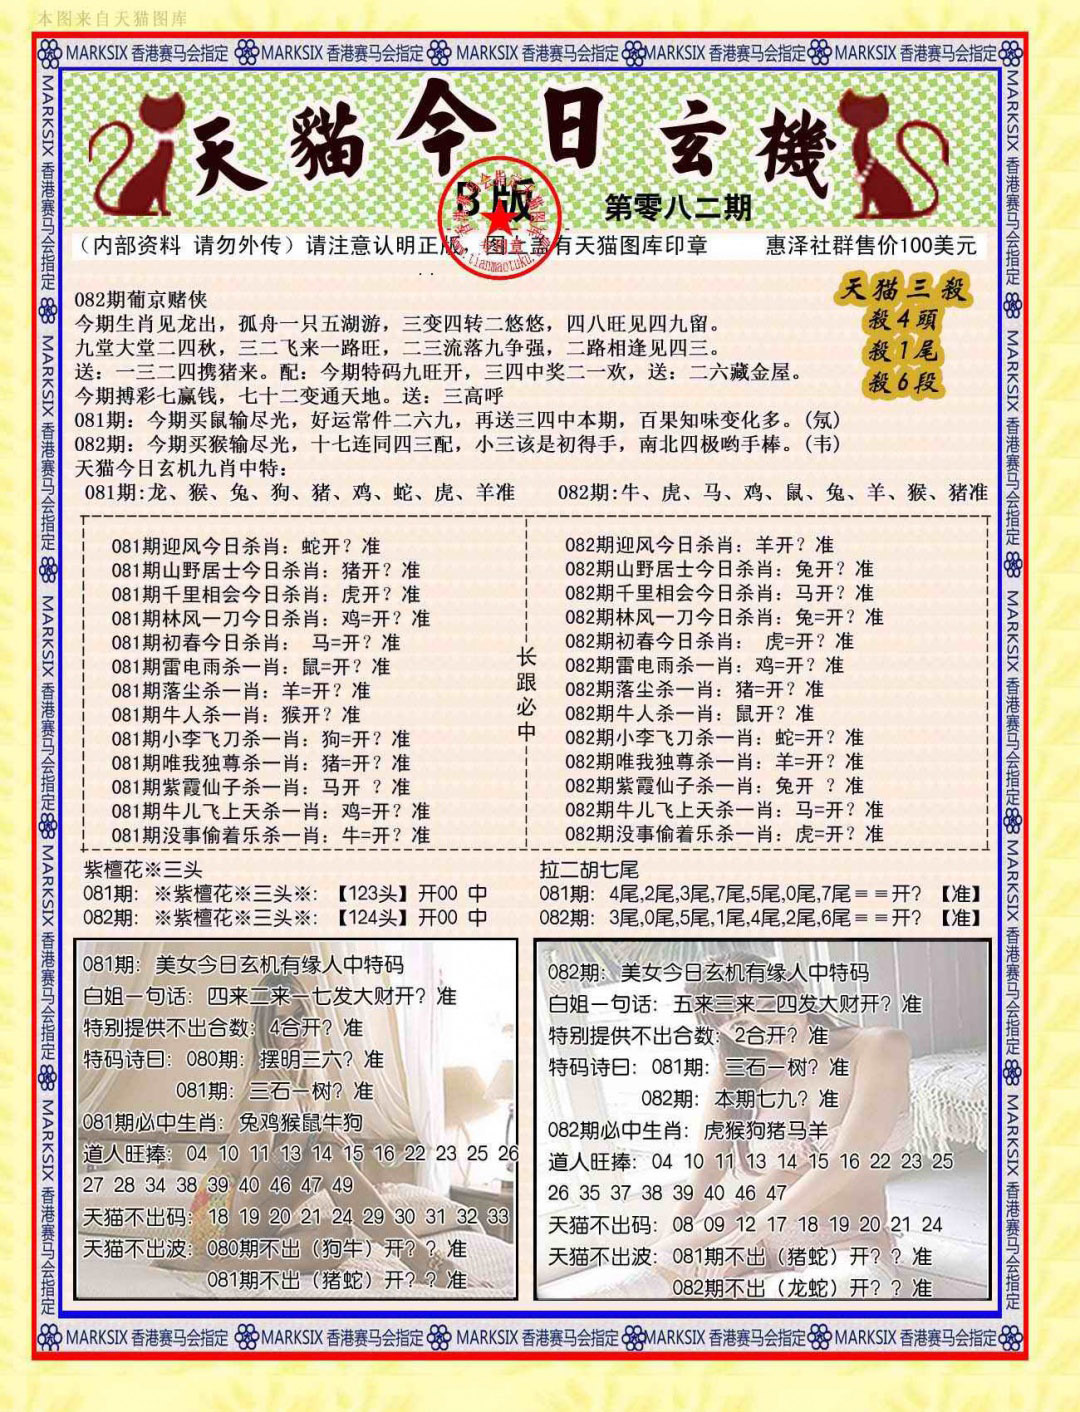 本图来自天猫图库
MARKSIX 香港赛马会指定 MARKSIX 香港赛马会指定 MARKSIX 香港赛马会指定 MARKSIX 香港赛马会指定 MARKSIX 香港赛马会指定
天貓今日玄機
B版
第零八二期
(内部资料 请勿外传)请注意认明正版,图上盖有天猫图库印章 惠泽社群售价100美元
天猫三殺
殺4頭
殺1尾
殺6段
082期葡京赌侠
今期生肖见龙出，孤舟一只五湖游，三变四转二悠悠，四八旺见四九留。
九堂大堂二四秋，三二飞来一路旺，二三流落九争强，二路相逢见四三。
送：一三二四携猪来。配：今期特码九旺开，三四中奖二一欢，送：二六藏金屋。
今期搏彩七赢钱，七十二变通天地。送：三高呼
081期：今期买鼠输尽光，好运常件二六九，再送三四中本期，百果知味变化多。(氛)
082期：今期买猴输尽光，十七连同四三配，小三该是初得手，南北四极哟手棒。(韦)
天猫今日玄机九肖中特：
081期:龙、猴、兔、狗、猪、鸡、蛇、虎、羊准 082期:牛、虎、马、鸡、鼠、兔、羊、猴、猪准
081期迎风今日杀肖：蛇开？准
081期山野居士今日杀肖：猪开？准
081期千里相会今日杀肖：虎开？准
081期林风一刀今日杀肖：鸡=开？准
081期初春今日杀肖： 马=开？准
081期雷电雨杀一肖：鼠=开？准
081期落尘杀一肖：羊=开？准
081期牛人杀一肖：猴开？准
081期小李飞刀杀一肖：狗=开？准
081期唯我独尊杀一肖：猪=开？准
081期紫霞仙子杀一肖：马开 ？准
081期牛儿飞上天杀一肖：鸡=开？准
081期没事偷着乐杀一肖：牛=开？准
长跟必中
082期迎风今日杀肖：羊开？准
082期山野居士今日杀肖：兔开？准
082期千里相会今日杀肖：马开？准
082期林风一刀今日杀肖：兔=开？准
082期初春今日杀肖： 虎=开？准
082期雷电雨杀一肖：鸡=开？准
082期落尘杀一肖：猪=开？准
082期牛人杀一肖：鼠开？准
082期小李飞刀杀一肖：蛇=开？准
082期唯我独尊杀一肖：羊=开？准
082期紫霞仙子杀一肖：兔开 ？准
082期牛儿飞上天杀一肖：马=开？准
082期没事偷着乐杀一肖：虎=开？准
紫檀花※三头
081期：※紫檀花※三头※:【123头】开00 中
082期：※紫檀花※三头※:【124头】开00 中
拉二胡七尾
081期：4尾,2尾,3尾,7尾,5尾,0尾,7尾＝＝开？【准】
082期：3尾,0尾,5尾,1尾,4尾,2尾,6尾＝＝开？【准】
081期：美女今日玄机有缘人中特码
白姐一句话：四来二来一七发大财开？准
特别提供不出合数：4合开？准
特码诗曰：080期：摆明三六？准
081期：三石一树？准
081期必中生肖：兔鸡猴鼠牛狗
道人旺捧：04 10 11 13 14 15 16 22 23 25 26
27 28 34 38 39 40 46 47 49
天猫不出码：18 19 20 21 24 29 30 31 32 33
天猫不出波：080期不出（狗牛）开？？准
081期不出（猪蛇）开？？准
082期：美女今日玄机有缘人中特码
白姐一句话：五来三来二四发大财开？准
特别提供不出合数：2合开？准
特码诗曰：081期：三石一树？准
082期：本期七九？准
082期必中生肖：虎猴狗猪马羊
道人旺捧：04 10 11 13 14 15 16 22 23 25
26 35 37 38 39 40 46 47
天猫不出码：08 09 12 17 18 19 20 21 24
天猫不出波：081期不出（猪蛇）开？？准
082期不出（龙蛇）开？？准
MARKSIX 香港赛马会指定 MARKSIX 香港赛马会指定 MARKSIX 香港赛马会指定 MARKSIX 香港赛马会指定 MARKSIX 香港赛马会指定
MARKSIX 香港赛马会指定 MARKSIX 香港赛马会指定 MARKSIX 香港赛马会指定 MARKSIX 香港赛马会指定 MARKSIX 香港赛马会指定
MARKSIX 香港赛马会指定 MARKSIX 香港赛马会指定 MARKSIX 香港赛马会指定 MARKSIX 香港赛马会指定 MARKSIX 香港赛马会指定